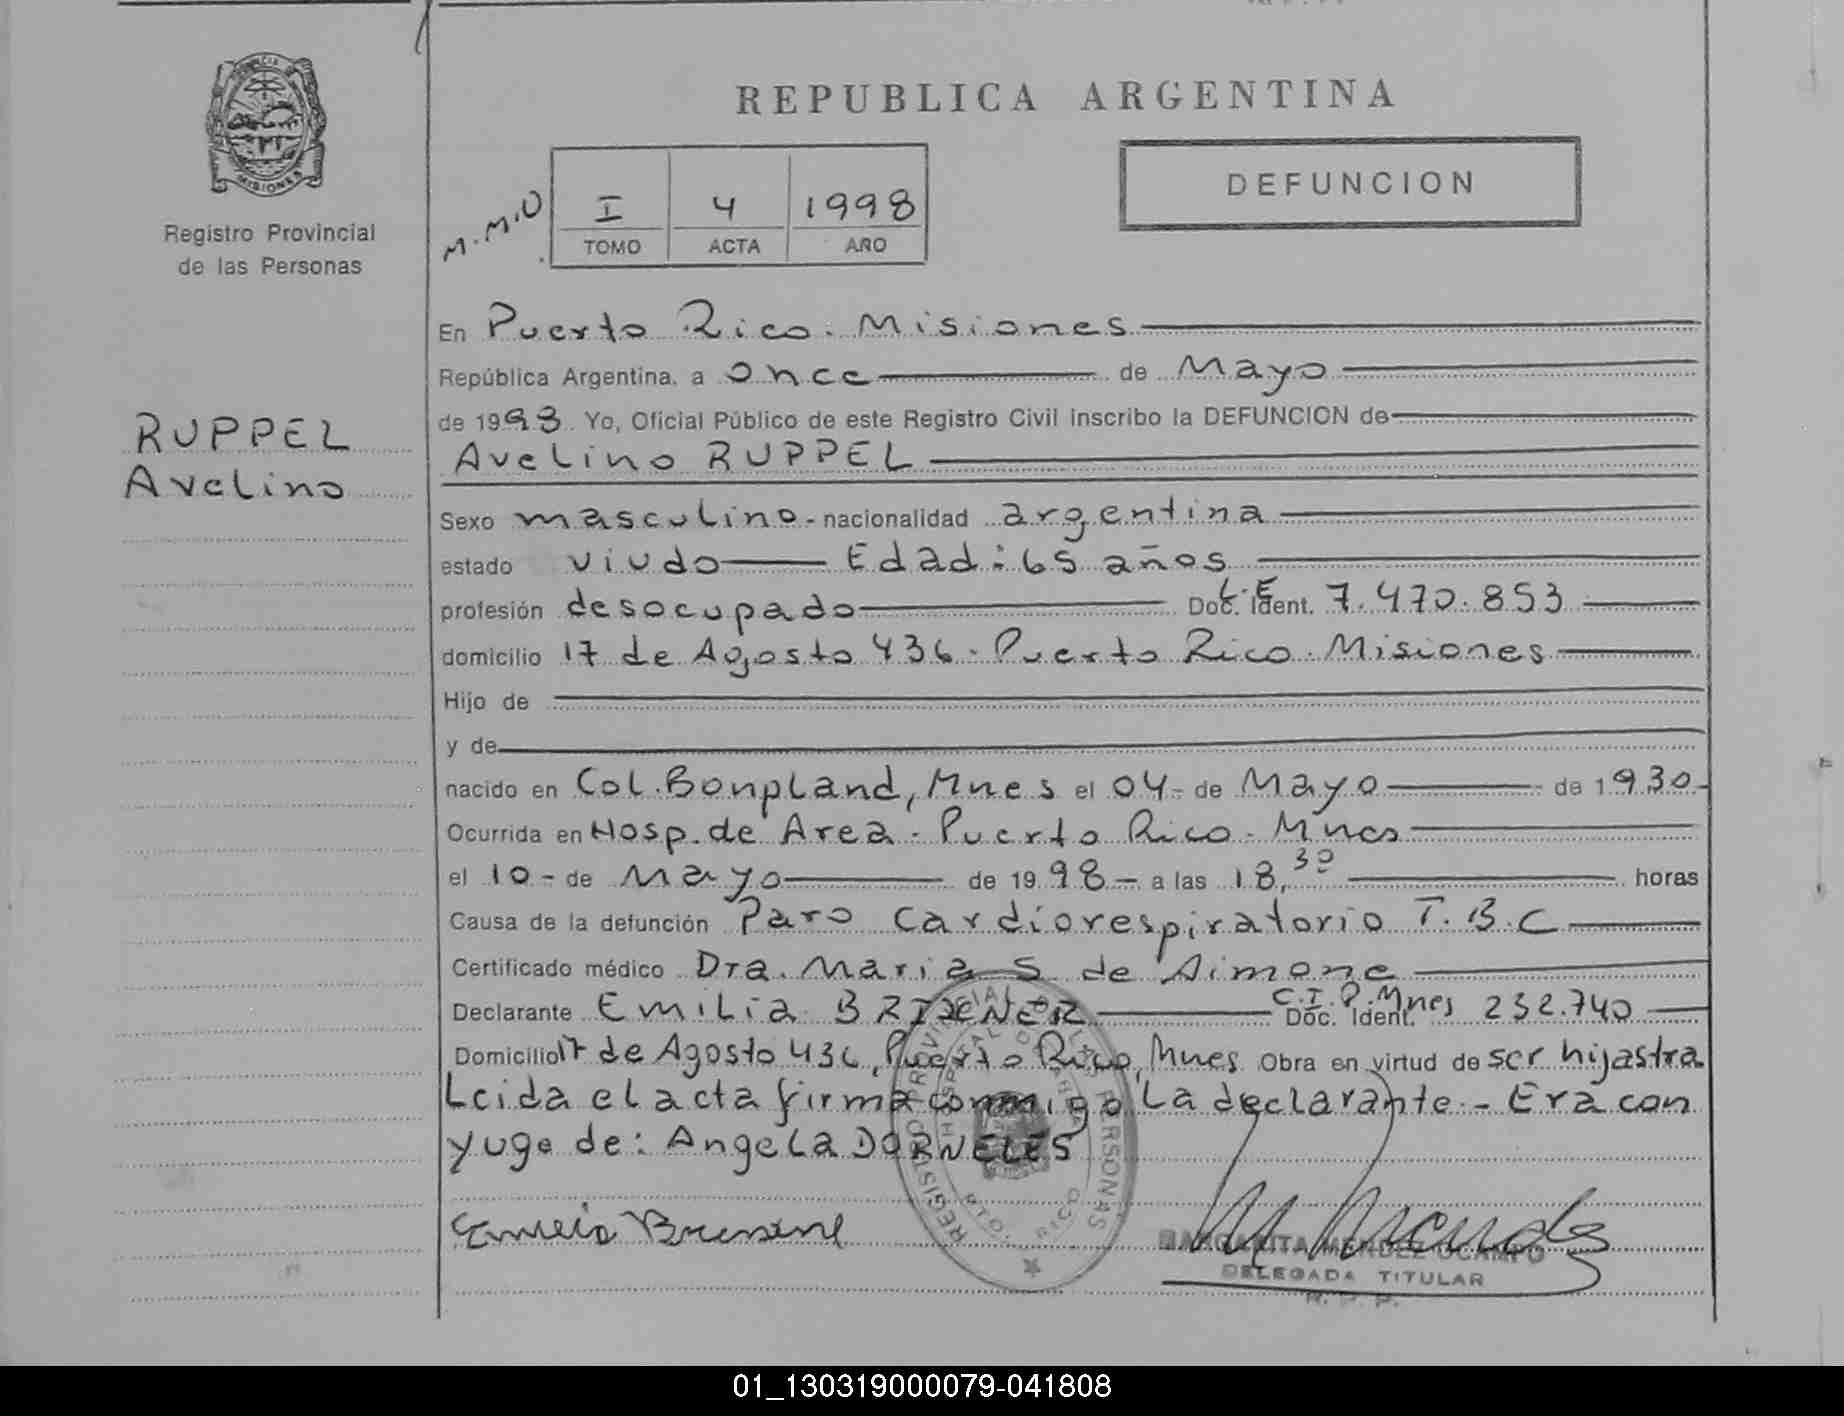 REPUBLICA ARGENTINA
DEFUNCION
MISIONES
Registro Provincial
de las Personas
M.M.U
I 4 1998
TOMO ACTA AÑO
RUPPEL
Avelino
En Puerto Rico. Misiones
República Argentina, a once de Mayo
de 1998 Yo, Oficial Público de este Registro Civil inscribo la DEFUNCION de
Avelino RUPPEL
Sexo masculino - nacionalidad argentina
estado viudo Edad: 65 años
profesión desocupado Doc. Ident. L.E 7.470.853
domicilio 17 de Agosto 436. Puerto Rico. Misiones
Hijo de
y de
nacido en Col. Bonpland, Mnes el 04- de Mayo de 1930-
Ocurrida en Hosp. de Area - Puerto Rico - Mnes
el 10 - de Mayo de 1998 - a las 18,30 horas
Causa de la defunción Paro cardiorespiratorio T.B.C
Certificado médico Dra. Maria S de Simone
Declarante Emilia Doc. Ident. C.I.P. Mnes 232.740
Domicilio 17 de Agosto 436, Puerto Rico, Mnes Obra en virtud de ser hijastra
Leida el acta firma conmigo La declarante - Era con
yuge de: Angela DORNELES
REGISTRO PROVINCIAL DE LAS PERSONAS
HOSPITAL
PTO. RICO
MARGARITA MENDEZ OCAMPO
DELEGADA TITULAR
R. P. P.
01_130319000079-041808